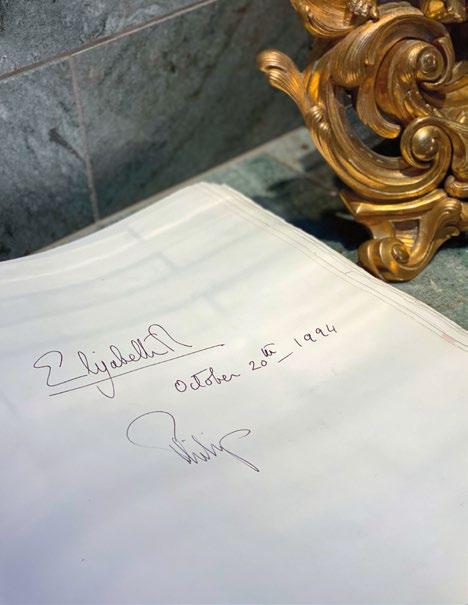 Elizabeth R
October 20th_ 1994
Philip